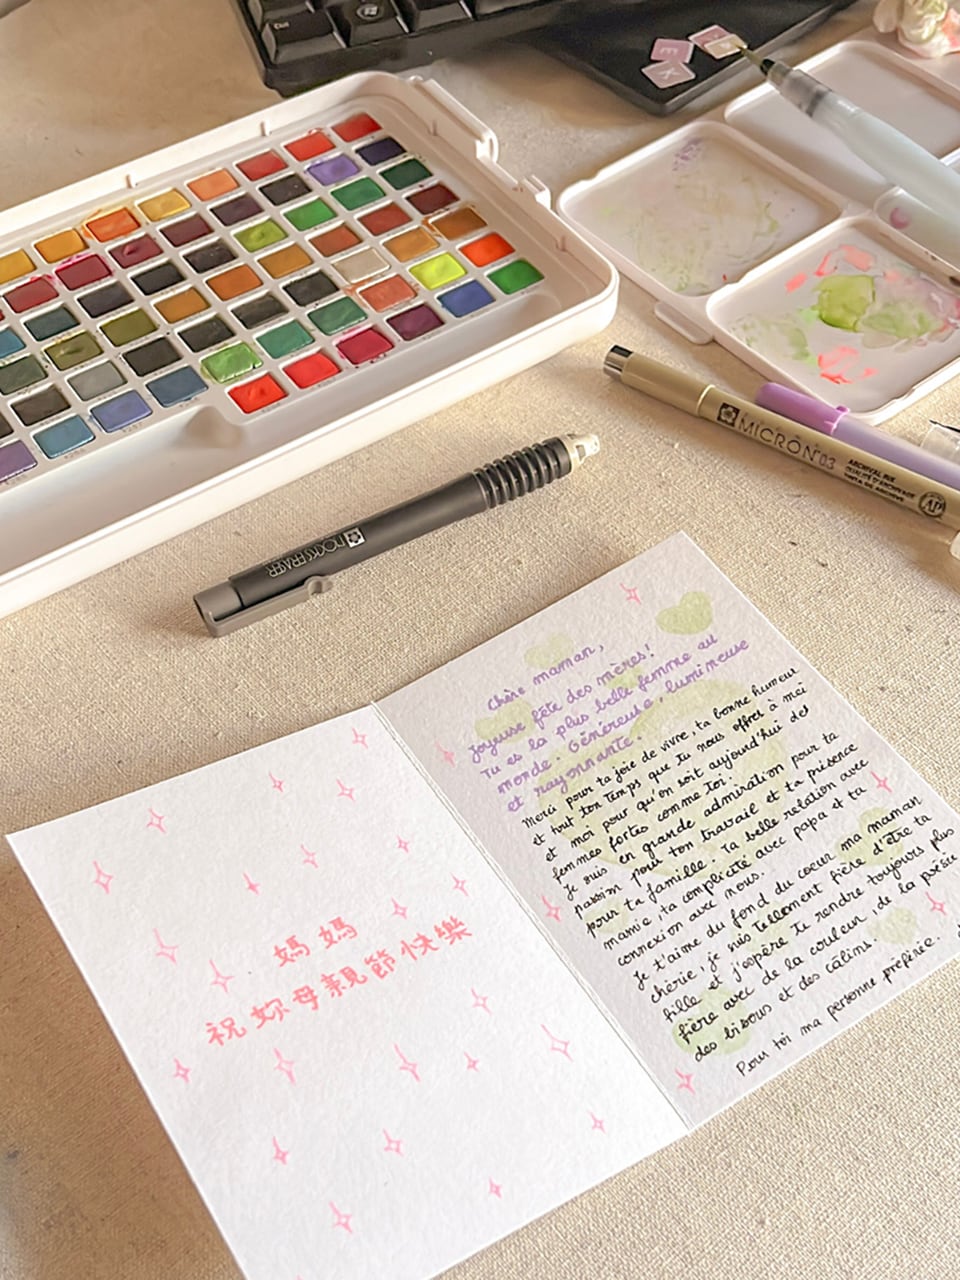 Ctrl
E
K
MICRON 03
ARCHIVAL INK
TINTA DE ARCHIVO
AP
媽 媽
祝 妳 母 親 節 快 樂
Chère maman,
Joyeuse fête des mères!
Tu es la plus belle femme au
monde. Généreuse, lumineuse
et rayonnante.
Merci pour ta joie de vivre, ta bonne humeur
et tout ton temps que tu nous offres à mei
et moi pour qu'on soit aujourd'hui des
femmes fortes comme toi!
Je suis en grande admiration pour ta
passion pour ton travail et ta présence
pour ta famille. Ta belle relation avec
mamie, ta complicité avec papa et ta
connexion avec nous.
Je t'aime du fond du coeur ma maman
chérie, je suis tellement fière d'être ta
fille et j'espère te rendre toujours plus
fière avec de la couleur, de la poésie
des bisous et des câlins.
Pour toi ma personne préférée.